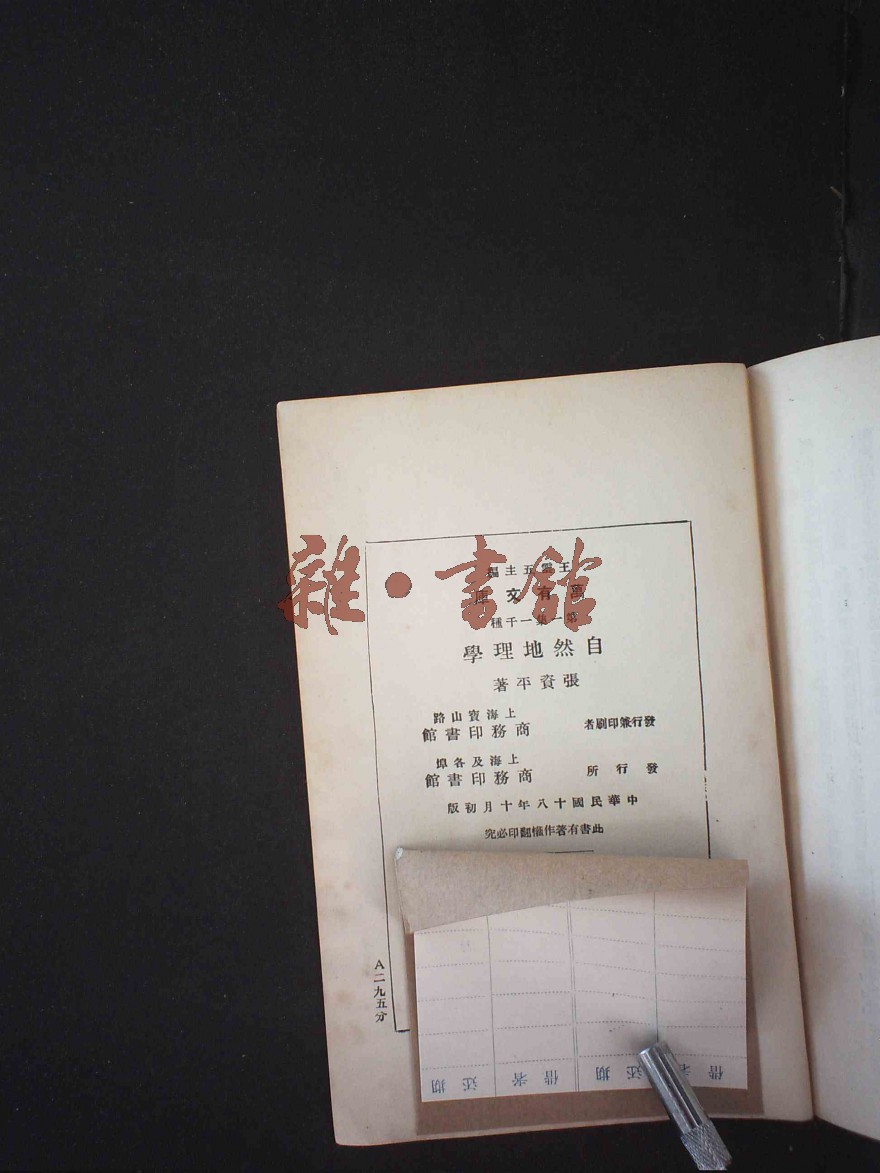 王雲五主編
萬有文庫
第一集一千種
自然地理學
張資平著
發行兼印刷者
上海寶山路
商務印書館
發行所
上海及各埠
商務印書館
中華民國十八年十月初版
此書有著作權翻印必究
A二九五分
借者 还期 借者 还期
雜·書館